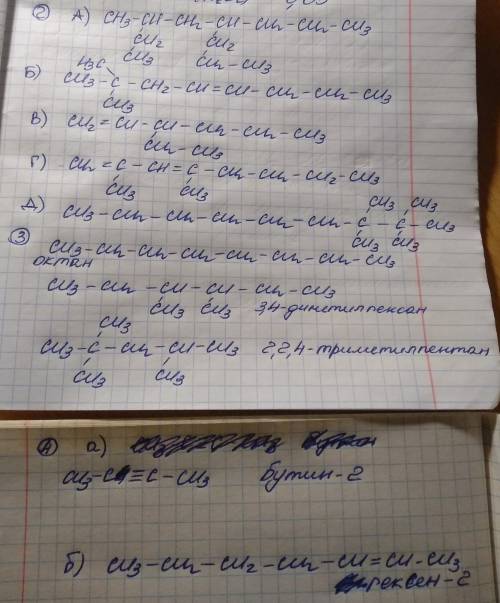 ② А) CH3-CH-CH2-CH-CH2-CH2-CH3
CH2 CH2
CH3 CH2-CH3
H3C
Б) CH3-C-CH2-CH=CH-CH2-CH2-CH3
CH3
В) CH2=CH-CH-CH2-CH2-CH3
CH2-CH3
Г) CH2=C-CH=C-CH2-CH2-CH2-CH3
CH3 CH3
CH3 CH3
Д) CH3-CH2-CH2-CH2-CH2-CH2-C-C-CH3
CH3 CH3
③ CH3-CH2-CH2-CH2-CH2-CH2-CH2-CH3
октан
CH3-CH2-CH-CH-CH2-CH3
CH3 CH3 3,4-диметилгексан
CH3
CH3-C-CH2-CH-CH3 2,2,4-триметилпентан
CH3 CH3
④ а)
CH3-C≡C-CH3 бутин-2
б) CH3-CH2-CH2-CH2-CH=CH-CH3
гексен-2